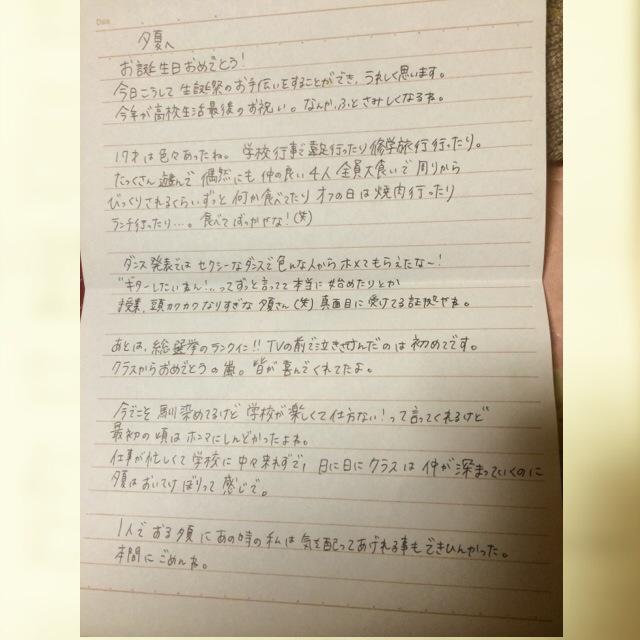 Date
夕夏へ
お誕生日おめでとう!
今日こうして生誕祭のお手伝いをすることができ、うれしく思います。
今年が高校生活最後のお祝い。なんか、ふとさみしくなるね。
17才は色々あったね。学校行事で遠足行ったり修学旅行行ったり。
たっくさん遊んで偶然にも仲の良い4人全員大食いで周りから
びっくりされるくらいずっと何か食べてたりオフの日は焼肉行ったり
ランチ行ったり…。食べてばっかやな!(笑)
ダンス発表ではセクシーなダンスで色んな人からホメてもらえたな〜!
"ギターしたいねん!"ってずっと言ってて本当に始めたりとか
授業、頭カクカクなりすぎな夕夏さん(笑)真面目に受けてる証拠やね。
あとは、総選挙のランクイン!!TVの前で泣きさけんだのは初めてです。
クラスからおめでとうの嵐。皆が喜んでくれてたよ。
今でこそ馴染めてるけど学校が楽しくて仕方ない!って言ってくれるけど
最初の頃はホンマにしんどかったよね。
仕事が忙しくて学校に中々来れずで、日に日にクラスは仲が深まっていくのに
夕夏はおいてけぼりって感じで。
1人でおる夕夏にあの時の私は気を配ってあげれる事もできひんかった。
本間にごめんね。